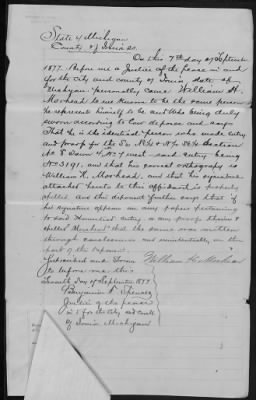 State of Michigan
County of Ionia ss.
On this 7th day of September
1877. Before me a Justice of the peace in and
for the city and county of Ionia State of
Michigan personally came William H.
Morhead to me known to be the same person
he represent himself to be and Who being duly
sworn according to law deposes and says
That he is the identical person who made entry
and proof for the Se N¼ & N½ Section
No 8 Town 4 N 7 west said entry being
No 3191. and that his correct orthography is
William H. Morhead, and that his signature
attached hereto to this affidavit is properly
spelled and this deponent further says that if
his signature appears on any papers pertaining
to said Homestead entry or any proof therein
spelled Morehead that the same was written
through carelessness and unintentionally on the
part of the deponent.
Subscribed and Sworn William H Morhead
to before me this
Seventh Day of September 1877
Benjamin F Spencer
Justice of the peace
in & for the city and County
of Ionia Michigan